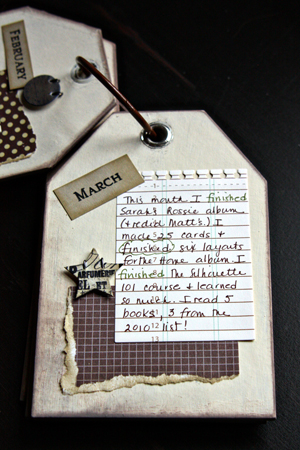 FEBRUARY
MARCH
This month I finished
Sarah's Rossie album
(+ redid Matt's.) I
made 25 cards +
(finished) six layouts
for the Home album. I
finished The Silhouette
101 course + learned
so much. I read 5
books, 3 from the
2010 list!
12
13
PARFUMERIE
EL ET